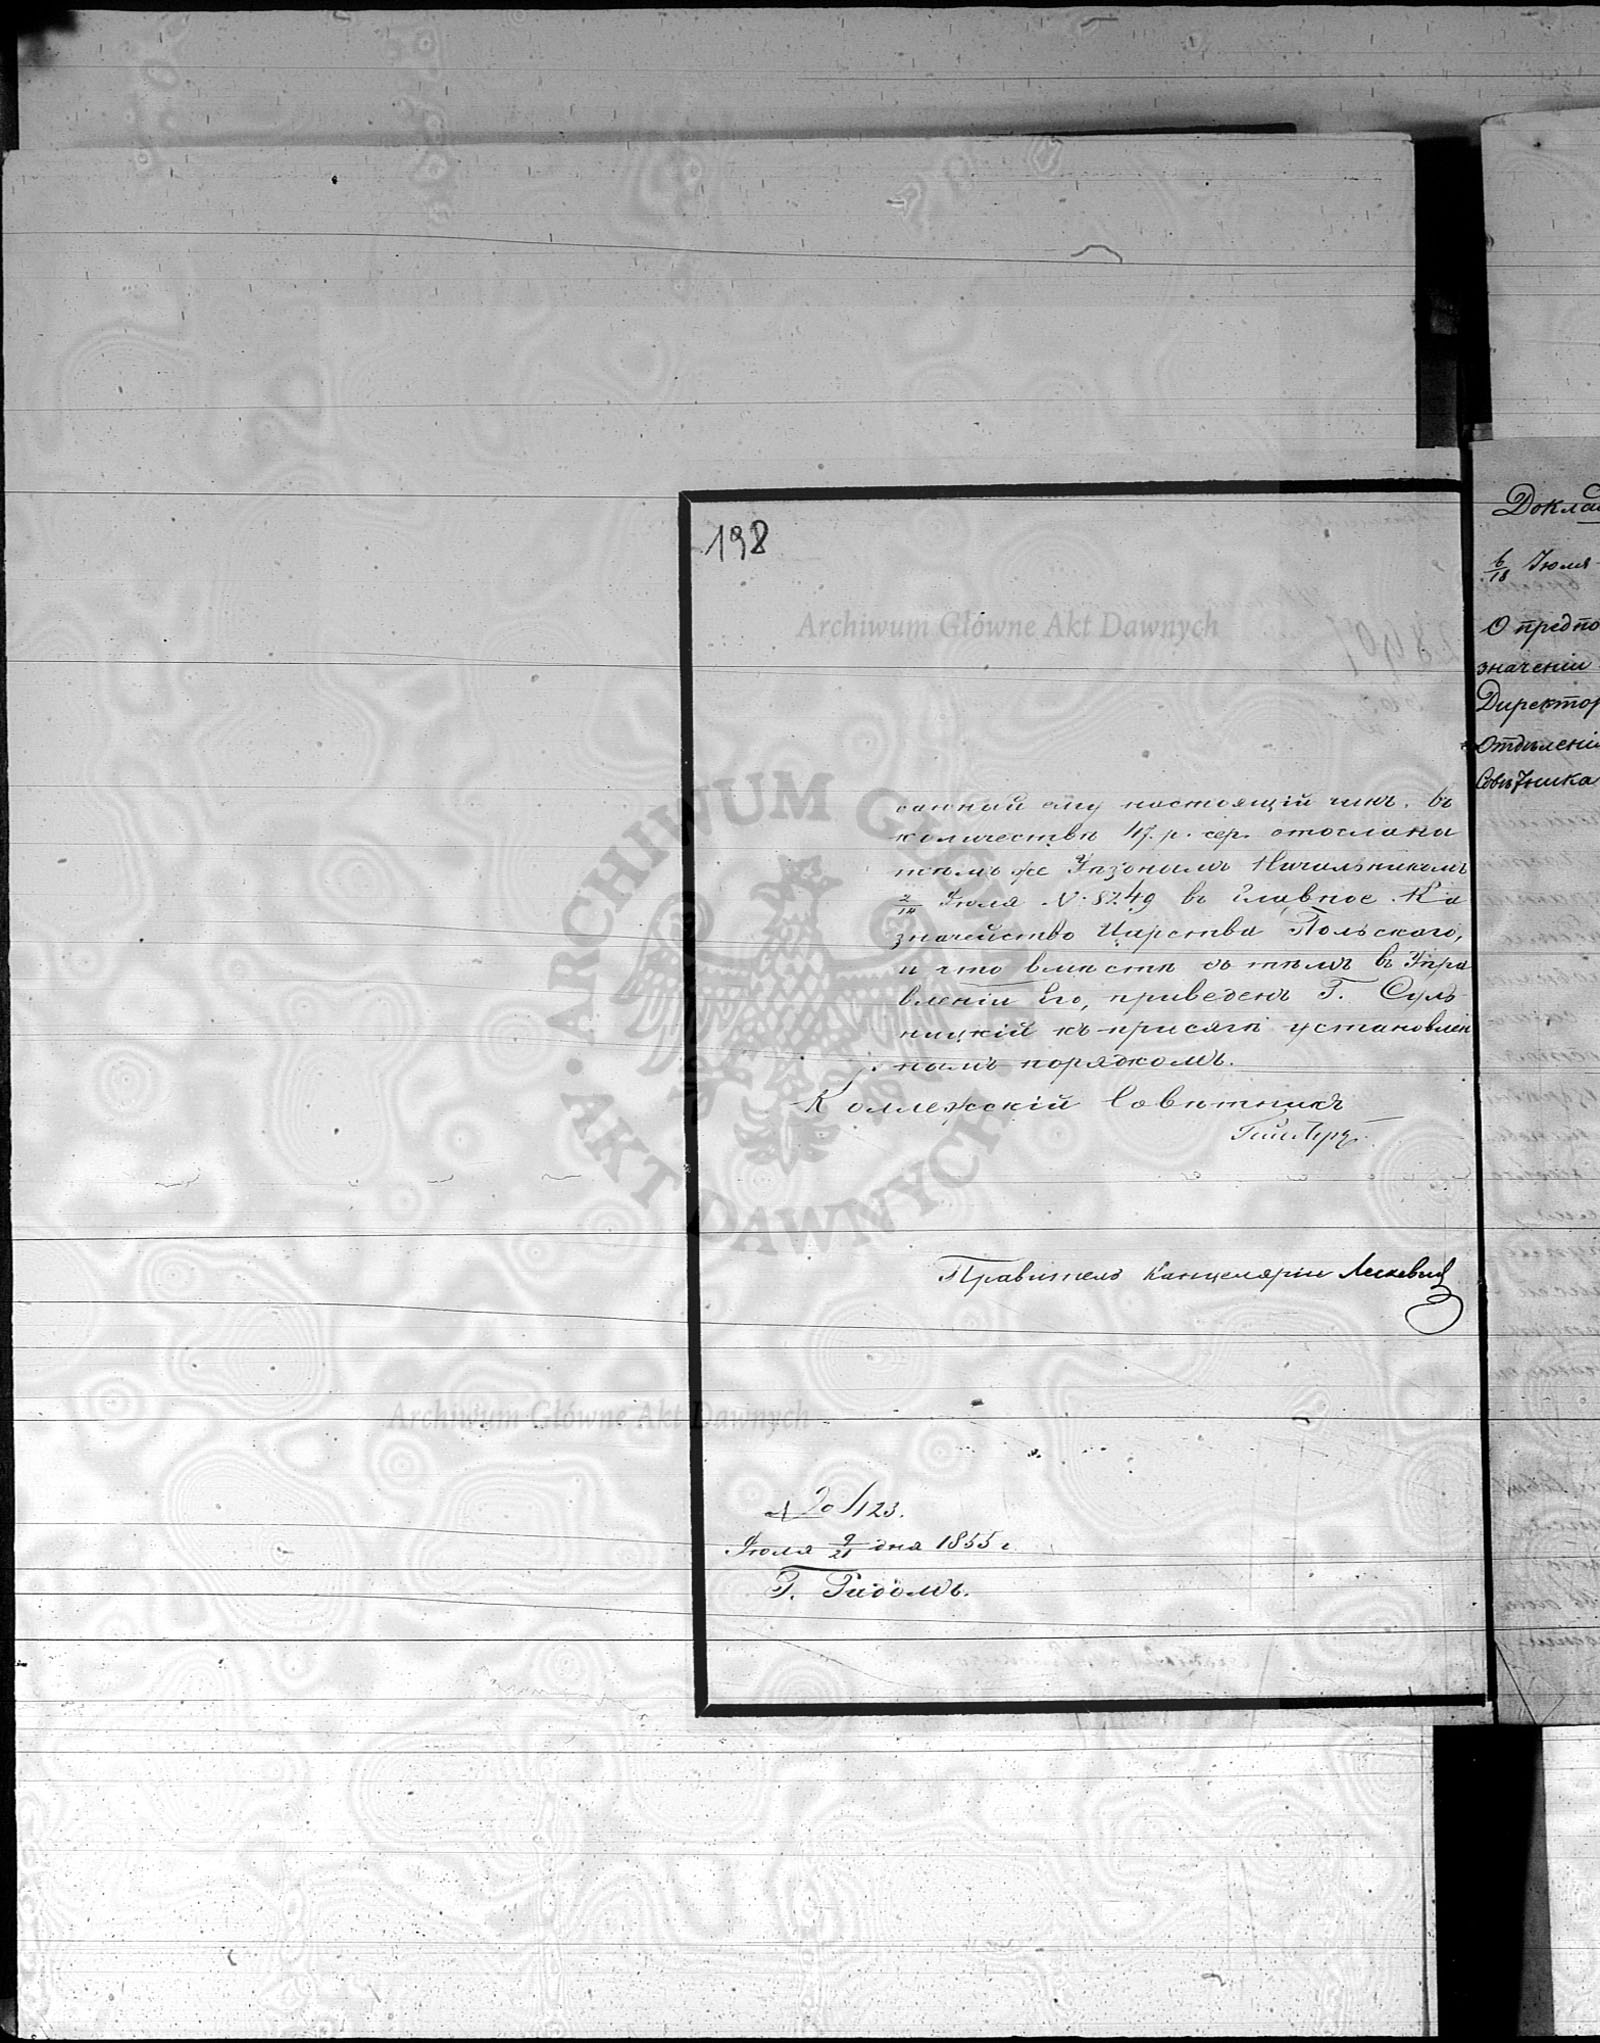 198
Archiwum Główne Akt Dawnych
санный ему настоящій чинъ. въ
количествѣ 47. р. сер. отослана
тѣмъ же Уѣзднымъ Начальникомъ
2/14 Іюля N. 8249 въ Главное Ка
значейство Царства Польскаго,
и что вмѣстѣ съ тѣмъ въ Упра
вленіи Его, приведенъ Г. Суль
ницкій къ присягѣ установлен
нымъ порядкомъ.
Коллежскій Совѣтникъ
Правитель Канцеляріи
ARCHIWUM GŁÓWNE
AKT DAWNYCH
Archiwum Główne Akt Dawnych
N 20423.
Іюля 9/21 дня 1855 г.
Г. Радомъ.
Докла
6/18 Іюля
О предпо
значеніи
Директор
Отдѣлені
Совѣтника